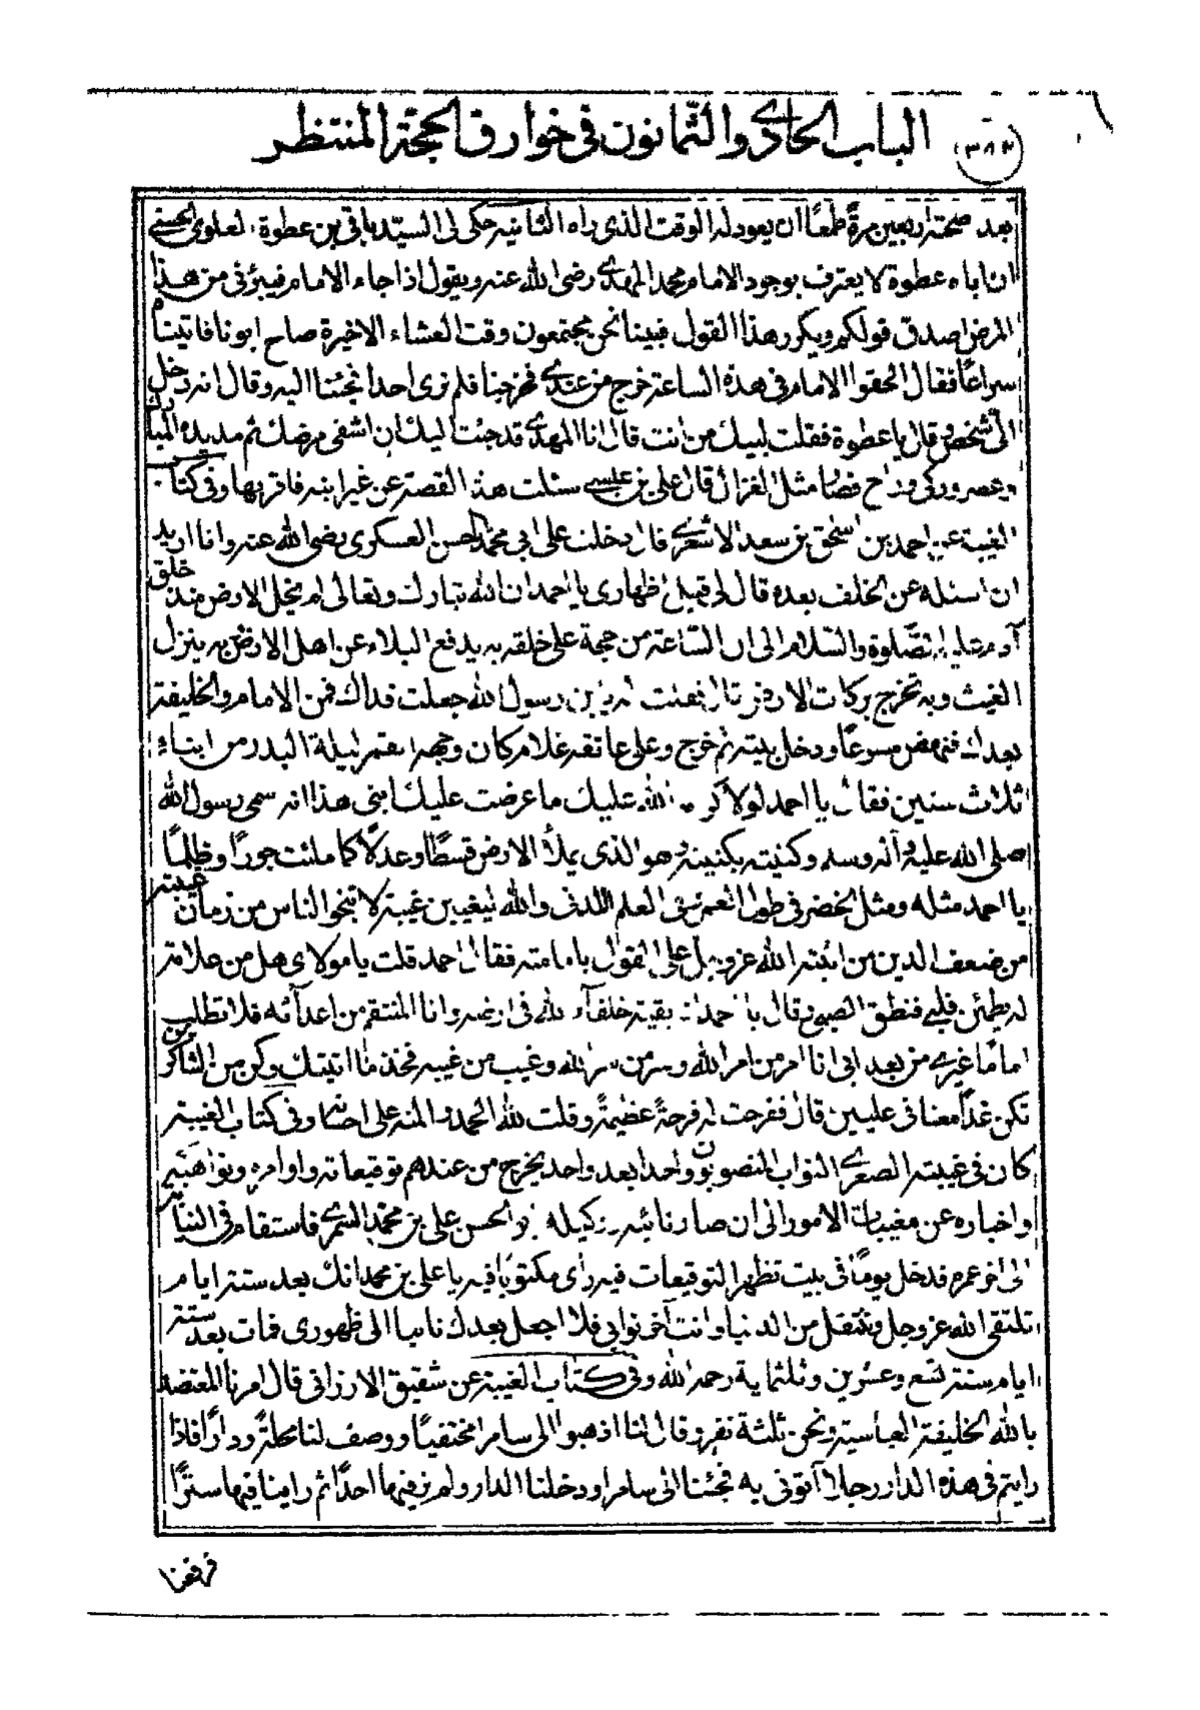 الباب الحادي والثمانون في خوارق الحجة المنتظر
(٣٨٣)
بعد صحته اربعين مرة طمعا ان يعود له الوقت الذي راه الثانية حكى لى السيد باقى بن عطوة العلوى الحسنى
ان اباه عطوة لا يعترف بوجود الامام محمد المهدى رضى الله عنه ويقول اذا جاء الامام فيبرئنى من هذا
المرض اصدق قولكم ويكرر هذا القول فبينا نحن مجتمعون وقت العشاء الاخيرة صاح ابونا فاتيناه
سراعا فقال الحقوا الامام فى هذه الساعة خرج من عندى فخرجنا فلم نرى احدا فجئنا اليه وقال انه دخل
الى شخص وقال يا عطوة فقلت لبيك من انت قال انا المهدى قد جئت اليك ان اشفى مرضك ثم مد يده المباركة
وعصر وركى وراح فصار مثل الغزال قال على بن عيسى سئلت هذه القصة عن غير ابنه فاقر بها وفى كتاب
الغيبة عن احمد بن اسحق بن سعد الاشعرى قال دخلت على ابى محمد الحسن العسكرى رضى الله عنه وانا اريد
ان اسئله عن الخلف بعده قال لى قبل اظهارى يا احمد ان الله تبارك وتعالى لم يخل الارض منذ خلق
آدم عليه الصلوة والسلام الى ان الساعة من حجة على خلقه به يدفع البلاء عن اهل الارض به ينزل
الغيث وبه تخرج بركات الارض قال فقلت له يا بن رسول الله جعلت فداك فمن الامام والخليفة
بعدك فنهض مسرعا ودخل بيته ثم خرج وعلى عاتقه غلام كان وجهه القمر ليلة البدر من ابناء
ثلاث سنين فقال يا احمد لولا كرم الله عليك ما عرضت عليك ابنى هذا انه سمى رسول الله
صلى الله عليه وآله وسلم وكنيته بكنيته وهو الذى يملأ الارض قسطا وعدلا كما ملئت جورا وظلما
يا احمد مثله ومثل الخضر فى طول العمر وفى العلم اللدنى والله ليغيبن غيبة لا تنجو الناس من زمان غيبته
من ضعف الدين من اثبته الله عز وجل على القول بامامته فقال احمد قلت يا مولاى هل من علامة
له يطمئن قلبى فنطق الصبى وقال يا احمد انا بقية خلفاء الله فى ارضه وانا المنتقم من اعدائه فلا تطلب
اماما غيرى من بعد ابى انا امر من امر الله وسر من سر الله وغيب من غيبه فخذ ما اتيتك وكن من الشاكرين
تكن غدا معنا فى عليين قال ففرحت له فرحة عظيمة وقلت لله الحمد والمنة على احسانه وفى كتاب الغيبة
كان فى غيبته الصغرى النواب المنصوبون واحدا بعد واحد يخرج من عندهم توقيعاته واوامره ونواهيه
واخباره عن مغيبات الامور الى ان صار نائبه ووكيله ابو الحسن على بن محمد السمرى فاستقام فى النيابة
الى آخر عمره فدخل يوما فى بيت تظهر التوقيعات فيه راى مكتوبا فيه يا على بن محمد انك بعد ستة ايام
تلتقى الله عز وجل وتنتقل من الدنيا وانت آخر نوابى فلا اجعل بعدك نائبا الى ظهورى فمات بعد ستة
ايام سنة تسع وعشرين وثلثماية رحمه الله وفى كتاب الغيبة عن شقيق الارزانى قال امرنا المعتضد
بالله الخليفة العباسية ونحن ثلثة نفر وقال لنا اذهبوا الى سامرا مختفيا ووصف لنا محلة ودارا فاذا
رايتم فى هذه الدار رجلا آتونى به فجئنا الى سامرا ودخلنا الدار ولم نر فيها احدا ثم راينا فيها سترا
فرفعنا